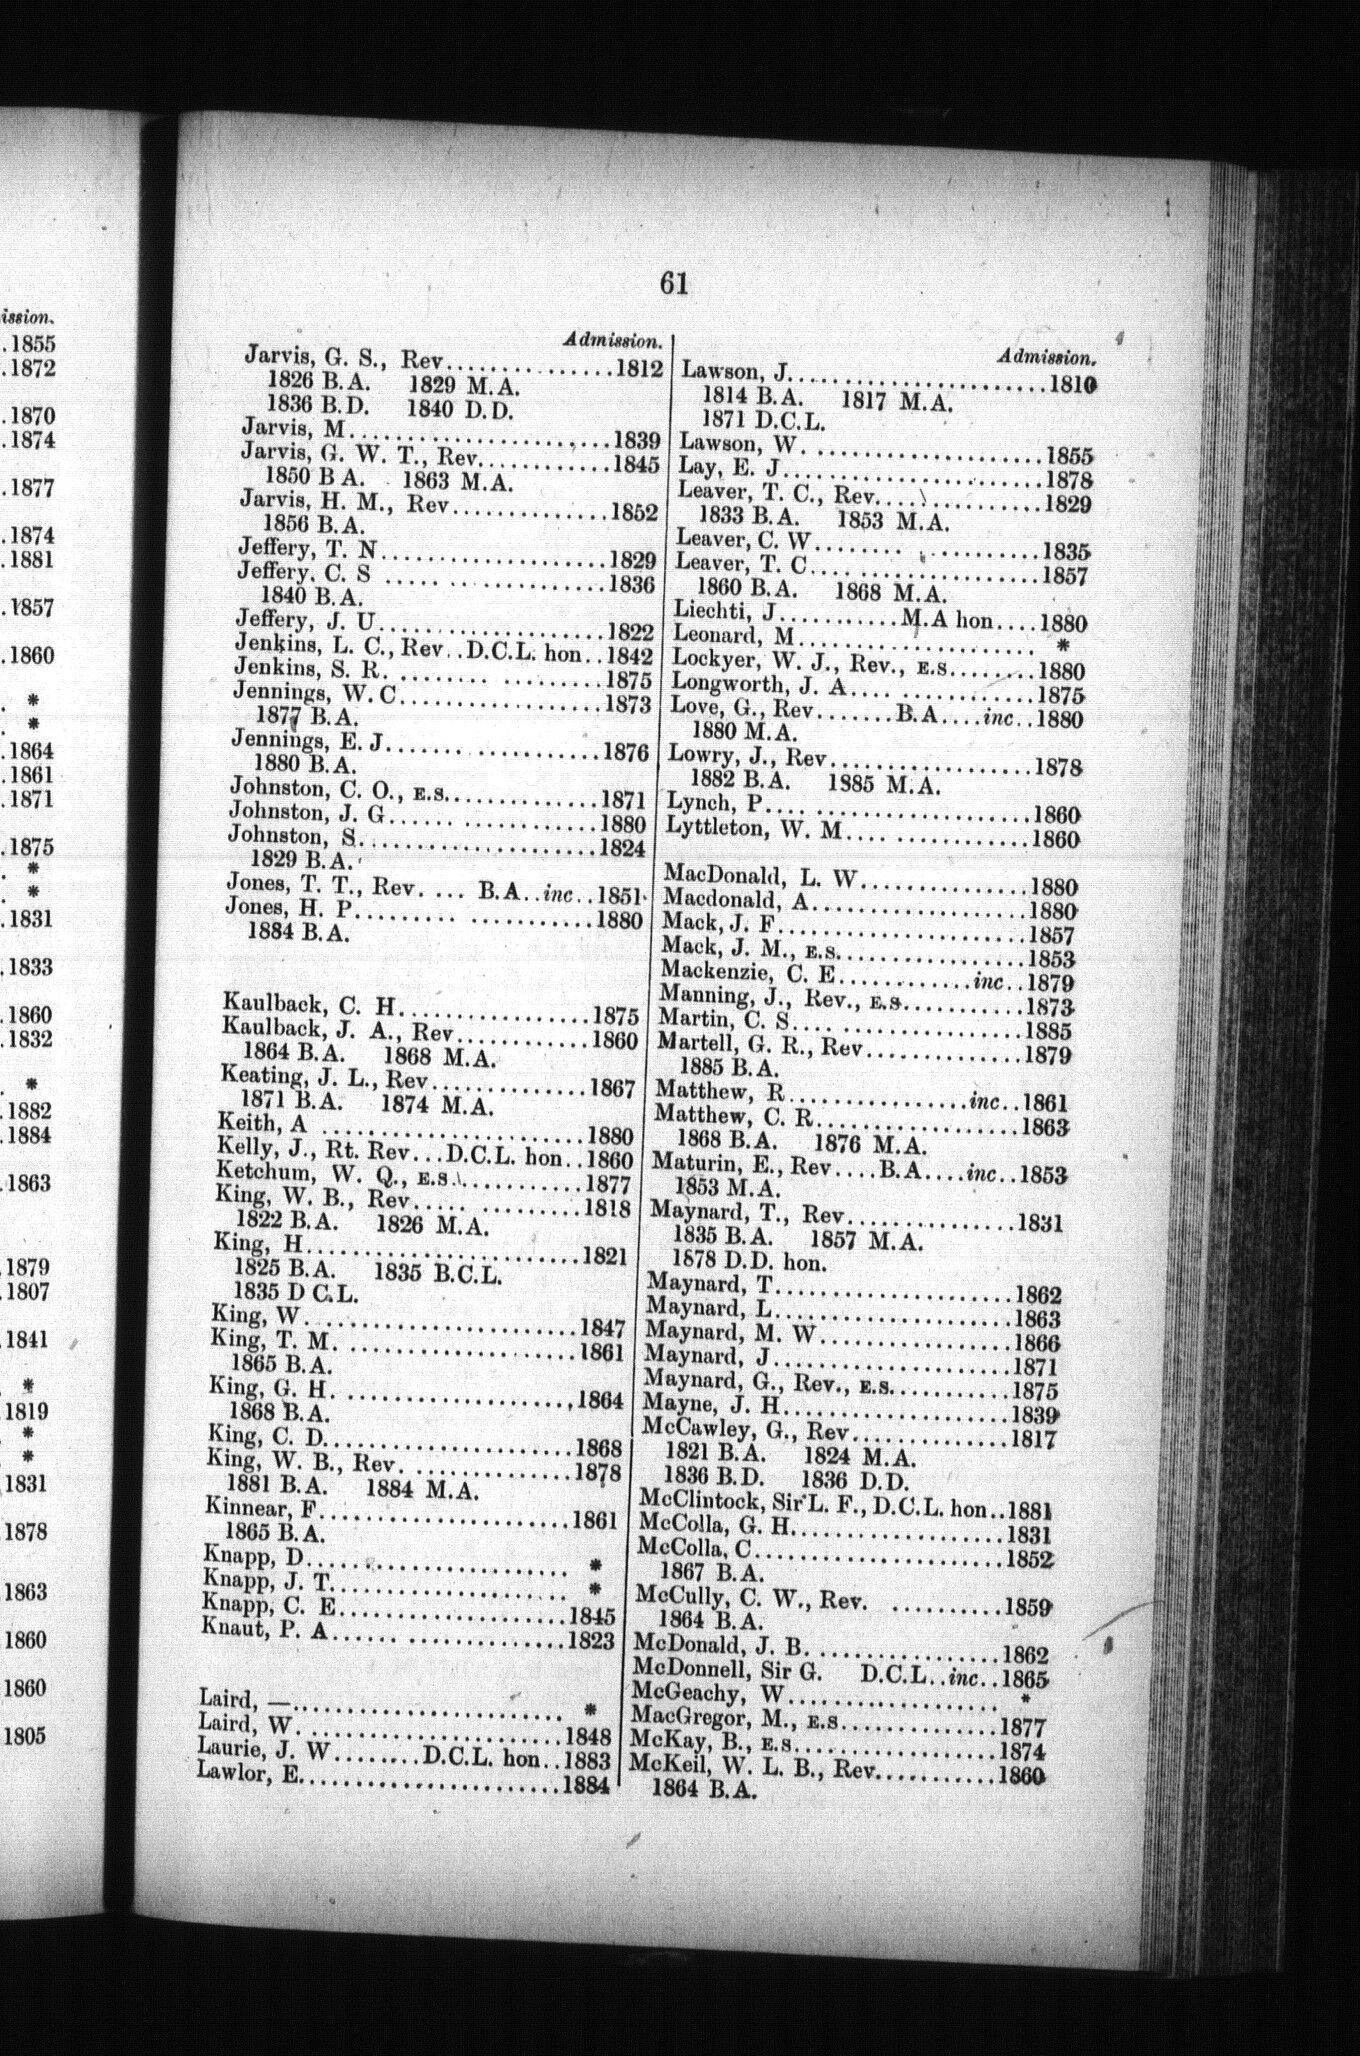 ission.
.1855
.1872
.1870
.1874
.1877
.1874
.1881
.1857
.1860
. *
. *
.1864
.1861
.1871
.1875
. *
. *
.1831
.1833
.1860
.1832
. *
.1882
.1884
.1863
.1879
.1807
.1841
*
1819
. *
*
1831
1878
1863
1860
1860
1805
61
Admission.
Jarvis, G. S., Rev...............1812
1826 B.A. 1829 M.A.
1836 B.D. 1840 D.D.
Jarvis, M........................1839
Jarvis, G. W. T., Rev............1845
1850 B A. 1863 M.A.
Jarvis, H. M., Rev..............1852
1856 B.A.
Jeffery, T. N....................1829
Jeffery. C. S ...................1836
1840 B.A.
Jeffery, J. U....................1822
Jenkins, L. C., Rev..D.C.L. hon..1842
Jenkins, S. R....................1875
Jennings, W. C...................1873
1877 B.A.
Jennings, E. J...................1876
1880 B.A.
Johnston, C. O., E.S.............1871
Johnston, J. G...................1880
Johnston, S......................1824
1829 B.A.
Jones, T. T., Rev.... B.A..inc..1851
Jones, H. P......................1880
1884 B.A.
Kaulback, C. H...................1875
Kaulback, J. A., Rev............1860
1864 B.A. 1868 M.A.
Keating, J. L., Rev..............1867
1871 B.A. 1874 M.A.
Keith, A ........................1880
Kelly, J., Rt. Rev...D.C.L. hon..1860
Ketchum, W. Q., E.S..............1877
King, W. B., Rev.................1818
1822 B.A. 1826 M.A.
King, H..........................1821
1825 B.A. 1835 B.C.L.
1835 D C.L.
King, W..........................1847
King, T. M.......................1861
1865 B.A.
King, G. H.......................1864
1868 B.A.
King, C. D.......................1868
King, W. B., Rev.................1878
1881 B.A. 1884 M.A.
Kinnear, F.......................1861
1865 B.A.
Knapp, D......................... *
Knapp, J. T...................... *
Knapp, C. E......................1845
Knaut, P. A......................1823
Laird, —......................... *
Laird, W.........................1848
Laurie, J. W........D.C.L. hon..1883
Lawlor, E........................1884
Admission.
Lawson, J........................1810
1814 B.A. 1817 M.A.
1871 D.C.L.
Lawson, W........................1855
Lay, E. J........................1878
Leaver, T. C., Rev...............1829
1833 B.A. 1853 M.A.
Leaver, C. W.....................1835
Leaver, T. C.....................1857
1860 B.A. 1868 M.A.
Liechti, J...........M.A hon....1880
Leonard, M....................... *
Lockyer, W. J., Rev., E.S........1880
Longworth, J. A..................1875
Love, G., Rev.......B.A....inc..1880
1880 M.A.
Lowry, J., Rev...................1878
1882 B.A. 1885 M.A.
Lynch, P.........................1860
Lyttleton, W. M..................1860
MacDonald, L. W..................1880
Macdonald, A.....................1880
Mack, J. F.......................1857
Mack, J. M., E.S.................1853
Mackenzie, C. E............inc..1879
Manning, J., Rev., E.S...........1873
Martin, C. S.....................1885
Martell, G. R., Rev..............1879
1885 B.A.
Matthew, R.................inc..1861
Matthew, C. R....................1863
1868 B.A. 1876 M.A.
Maturin, E., Rev....B.A....inc..1853
1853 M.A.
Maynard, T., Rev.................1831
1835 B.A. 1857 M.A.
1878 D.D. hon.
Maynard, T.......................1862
Maynard, L.......................1863
Maynard, M. W....................1866
Maynard, J.......................1871
Maynard, G., Rev., E.S...........1875
Mayne, J. H......................1839
McCawley, G., Rev................1817
1821 B.A. 1824 M.A.
1836 B.D. 1836 D.D.
McClintock, Sir L. F., D.C.L. hon..1881
McColla, G. H....................1831
McColla, C.......................1852
1867 B.A.
McCully, C. W., Rev. ..........1859
1864 B.A.
McDonald, J. B...................1862
McDonnell, Sir G. D.C.L..inc..1865
McGeachy, W...................... *
MacGregor, M., E.S...............1877
McKay, B., E.S...................1874
McKeil, W. L. B., Rev............1860
1864 B.A.